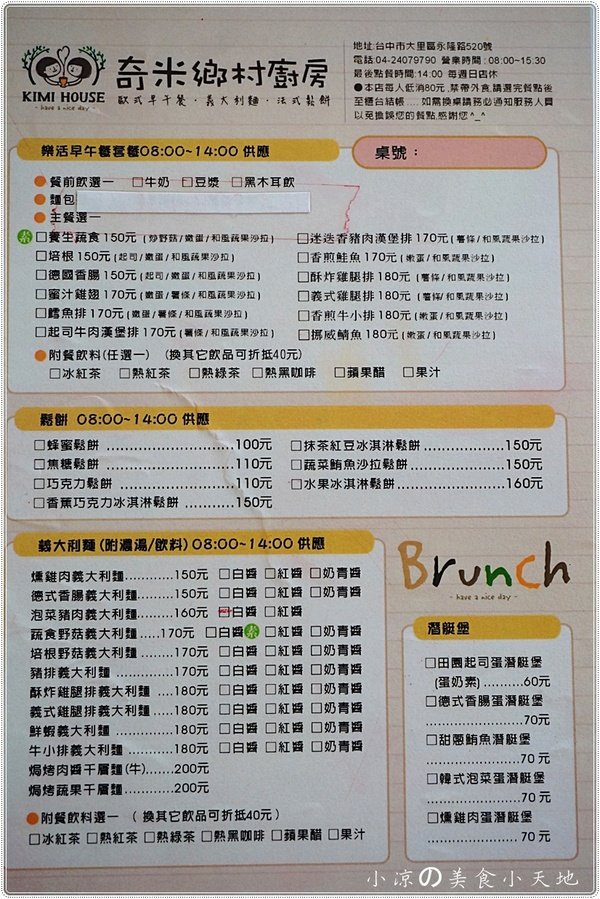 KIMI HOUSE
- have a nice day -
奇米鄉村廚房
歐式早午餐．義大利麵．法式鬆餅
地址:台中市大里區永隆路520號
電話:04-24079790 營業時間:08:00~15:30
最後點餐時間:14:00 每週日店休
●本店每人低消80元,禁帶外食,請選完餐點後
至櫃台結帳.....如需換桌請務必通知服務人員
以免擔娛您的餐點,感謝您^_^
樂活早午餐套餐08:00~14:00 供應
桌號：
●餐前飲選一 □牛奶 □豆漿 □黑木耳飲
●麵包
●主餐選一
素 □養生蔬食 150元 (炒野菇/嫩蛋/和風蔬果沙拉)
□培根 150元 (起司/嫩蛋/和風蔬果沙拉)
□德國香腸 150元 (起司/嫩蛋/和風蔬果沙拉)
□蜜汁雞翅 170元 (嫩蛋/薯條/和風蔬果沙拉)
□鱈魚排 170元 (嫩蛋/薯條/和風蔬果沙拉)
□起司牛肉漢堡排 170元 (薯條/和風蔬果沙拉)
□迷迭香豬肉漢堡排 170元 (薯條/和風蔬果沙拉)
□香煎鮭魚 170元 (嫩蛋/和風蔬果沙拉)
□酥炸雞腿排 180元 (薯條/和風蔬果沙拉)
□義式雞腿排 180元 (薯條/和風蔬果沙拉)
□香煎牛小排 180元 (嫩蛋/和風蔬果沙拉)
□挪威鯖魚 180元 (嫩蛋/和風蔬果沙拉)
●附餐飲料(任選一) (換其它飲品可折抵40元)
□冰紅茶 □熱紅茶 □熱綠茶 □熱黑咖啡 □蘋果醋 □果汁
鬆餅 08:00~14:00 供應
□蜂蜜鬆餅 ........................100元
□焦糖鬆餅 ........................110元
□巧克力鬆餅 .....................110元
□香蕉巧克力冰淇淋鬆餅 ............150元
□抹茶紅豆冰淇淋鬆餅 ...............150元
□蔬菜鮪魚沙拉鬆餅 ..................150元
□水果冰淇淋鬆餅 ........................160元
義大利麵(附濃湯/飲料) 08:00~14:00 供應
燻雞肉義大利麵............150元 □白醬 □紅醬 □奶青醬
德式香腸義大利麵.........150元 □白醬 □紅醬 □奶青醬
泡菜豬肉義大利麵.........160元 □白醬 □紅醬
蔬食野菇義大利麵.....170元 □白醬 素 □紅醬 □奶青醬
培根野菇義大利麵.........170元 □白醬 □紅醬 □奶青醬
豬排義大利麵 ...............170元 □白醬 □紅醬 □奶青醬
酥炸雞腿排義大利麵 ....180元 □白醬 □紅醬 □奶青醬
義式雞腿排義大利麵 .....180元 □白醬 □紅醬 □奶青醬
鮮蝦義大利麵 ...............180元 □白醬 □紅醬 □奶青醬
牛小排義大利麵 ............180元 □白醬 □紅醬 □奶青醬
焗烤肉醬千層麵(牛).......200元
焗烤蔬果千層麵............200元
●附餐飲料選一 ( 換其它飲品可折抵40元 )
□冰紅茶 □熱紅茶 □熱綠茶 □熱黑咖啡 □蘋果醋 □果汁
Brunch
- have a nice day -
潛艇堡
□田園起司蛋潛艇堡
(蛋奶素) ............60元
□德式香腸蛋潛艇堡
........................70元
□甜蔥鮪魚潛艇堡
........................70 元
□韓式泡菜蛋潛艇堡
........................70 元
□燻雞肉蛋潛艇堡
........................70 元
小涼の美食小天地